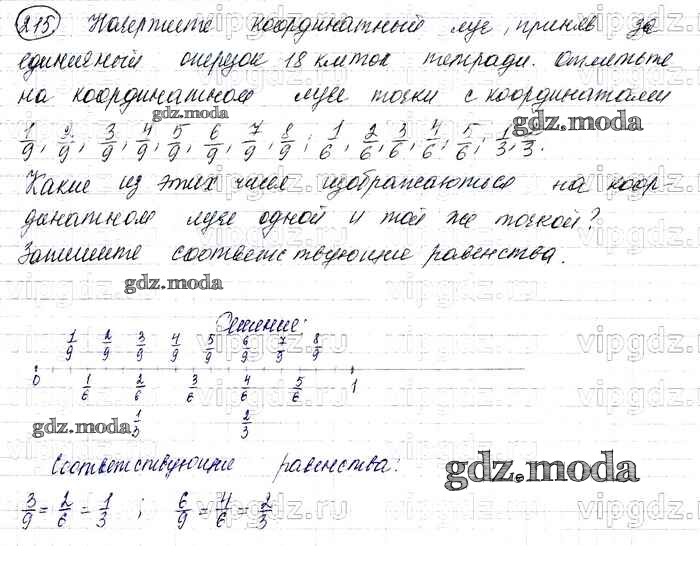 215. Начертите координатный луч, приняв за
единичный отрезок 18 клеток тетради. Отметьте
на координатном луче точки с координатами
gdz.moda
1/9, 2/9, 3/9, 4/9, 5/9, 6/9, 7/9, 8/9, 1/6, 2/6, 3/6, 4/6, 5/6, 1/3, 2/3.
gdz.moda
Какие из этих чисел изображаються на коор-
динатном луче одной и той же точкой?
Запишите соответствующие равенства.
gdz.moda
Решение:
1/9 2/9 3/9 4/9 5/9 6/9 7/9 8/9
0 1/6 2/6 3/6 4/6 5/6 1
1/3 2/3
gdz.moda
Соответствующие равенства:
gdz.moda
3/9 = 2/6 = 1/3 ; 6/9 = 4/6 = 2/3
vipgdz.ru
vipgdz.ru
vipgdz.ru
vipgdz.ru
vipgdz.ru
vipgdz.ru